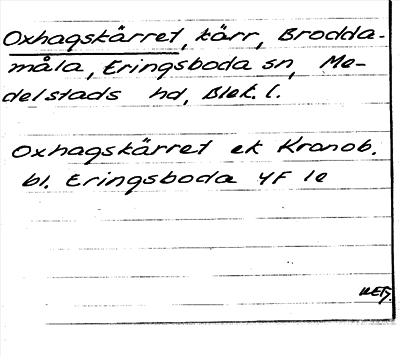 Oxhagskärret, kärr, Brodda-
måla, Eringsboda sn, Me-
delstads hd, Blek. l.
Oxhagskärret ek Kronob.
bl. Eringsboda 4F 1e